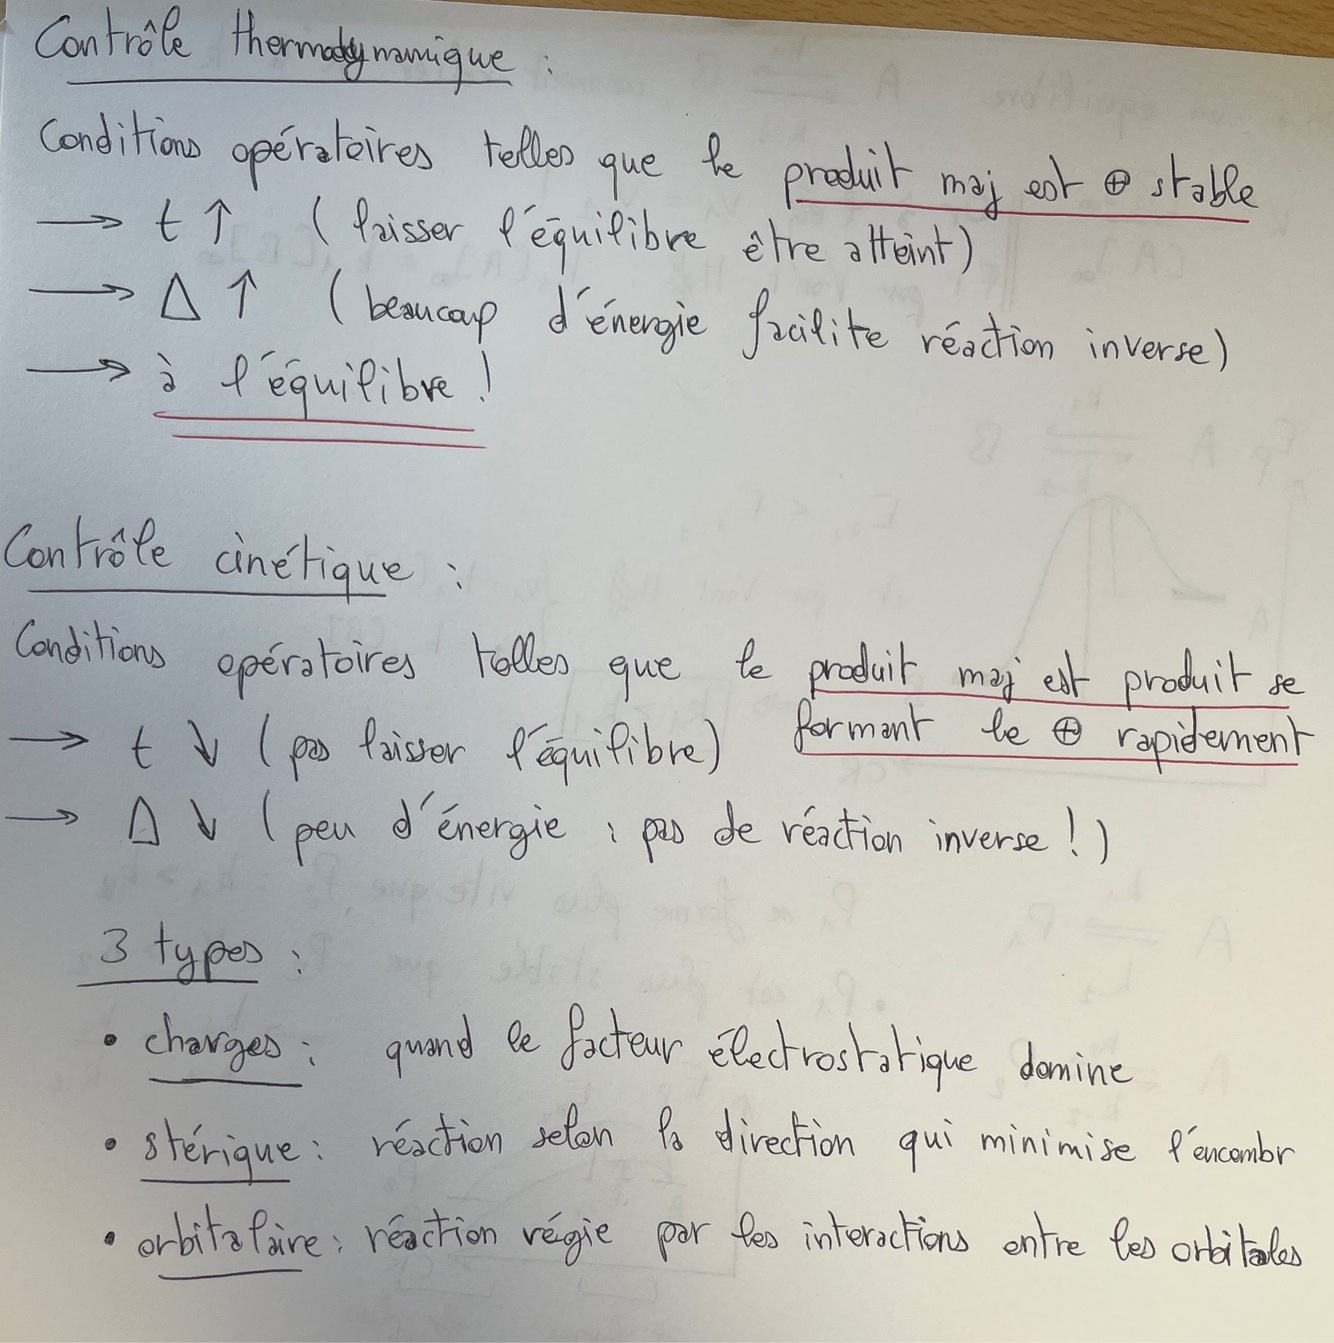 Contrôle thermodynamique :
Conditions opératoires telles que le produit maj est ⊕ stable
→ t ↑ (laisser l'équilibre être atteint)
→ Δ ↑ (beaucoup d'énergie facilite réaction inverse)
→ à l'équilibre !
Contrôle cinétique :
Conditions opératoires telles que le produit maj est produit se
formant le ⊕ rapidement
→ t ↓ (pas laisser l'équilibre)
→ Δ ↓ (peu d'énergie : pas de réaction inverse !)
3 types :
• charges : quand le facteur électrostatique domine
• stérique : réaction selon la direction qui minimise l'encombr
• orbitalaire : réaction régie par les interactions entre les orbitales